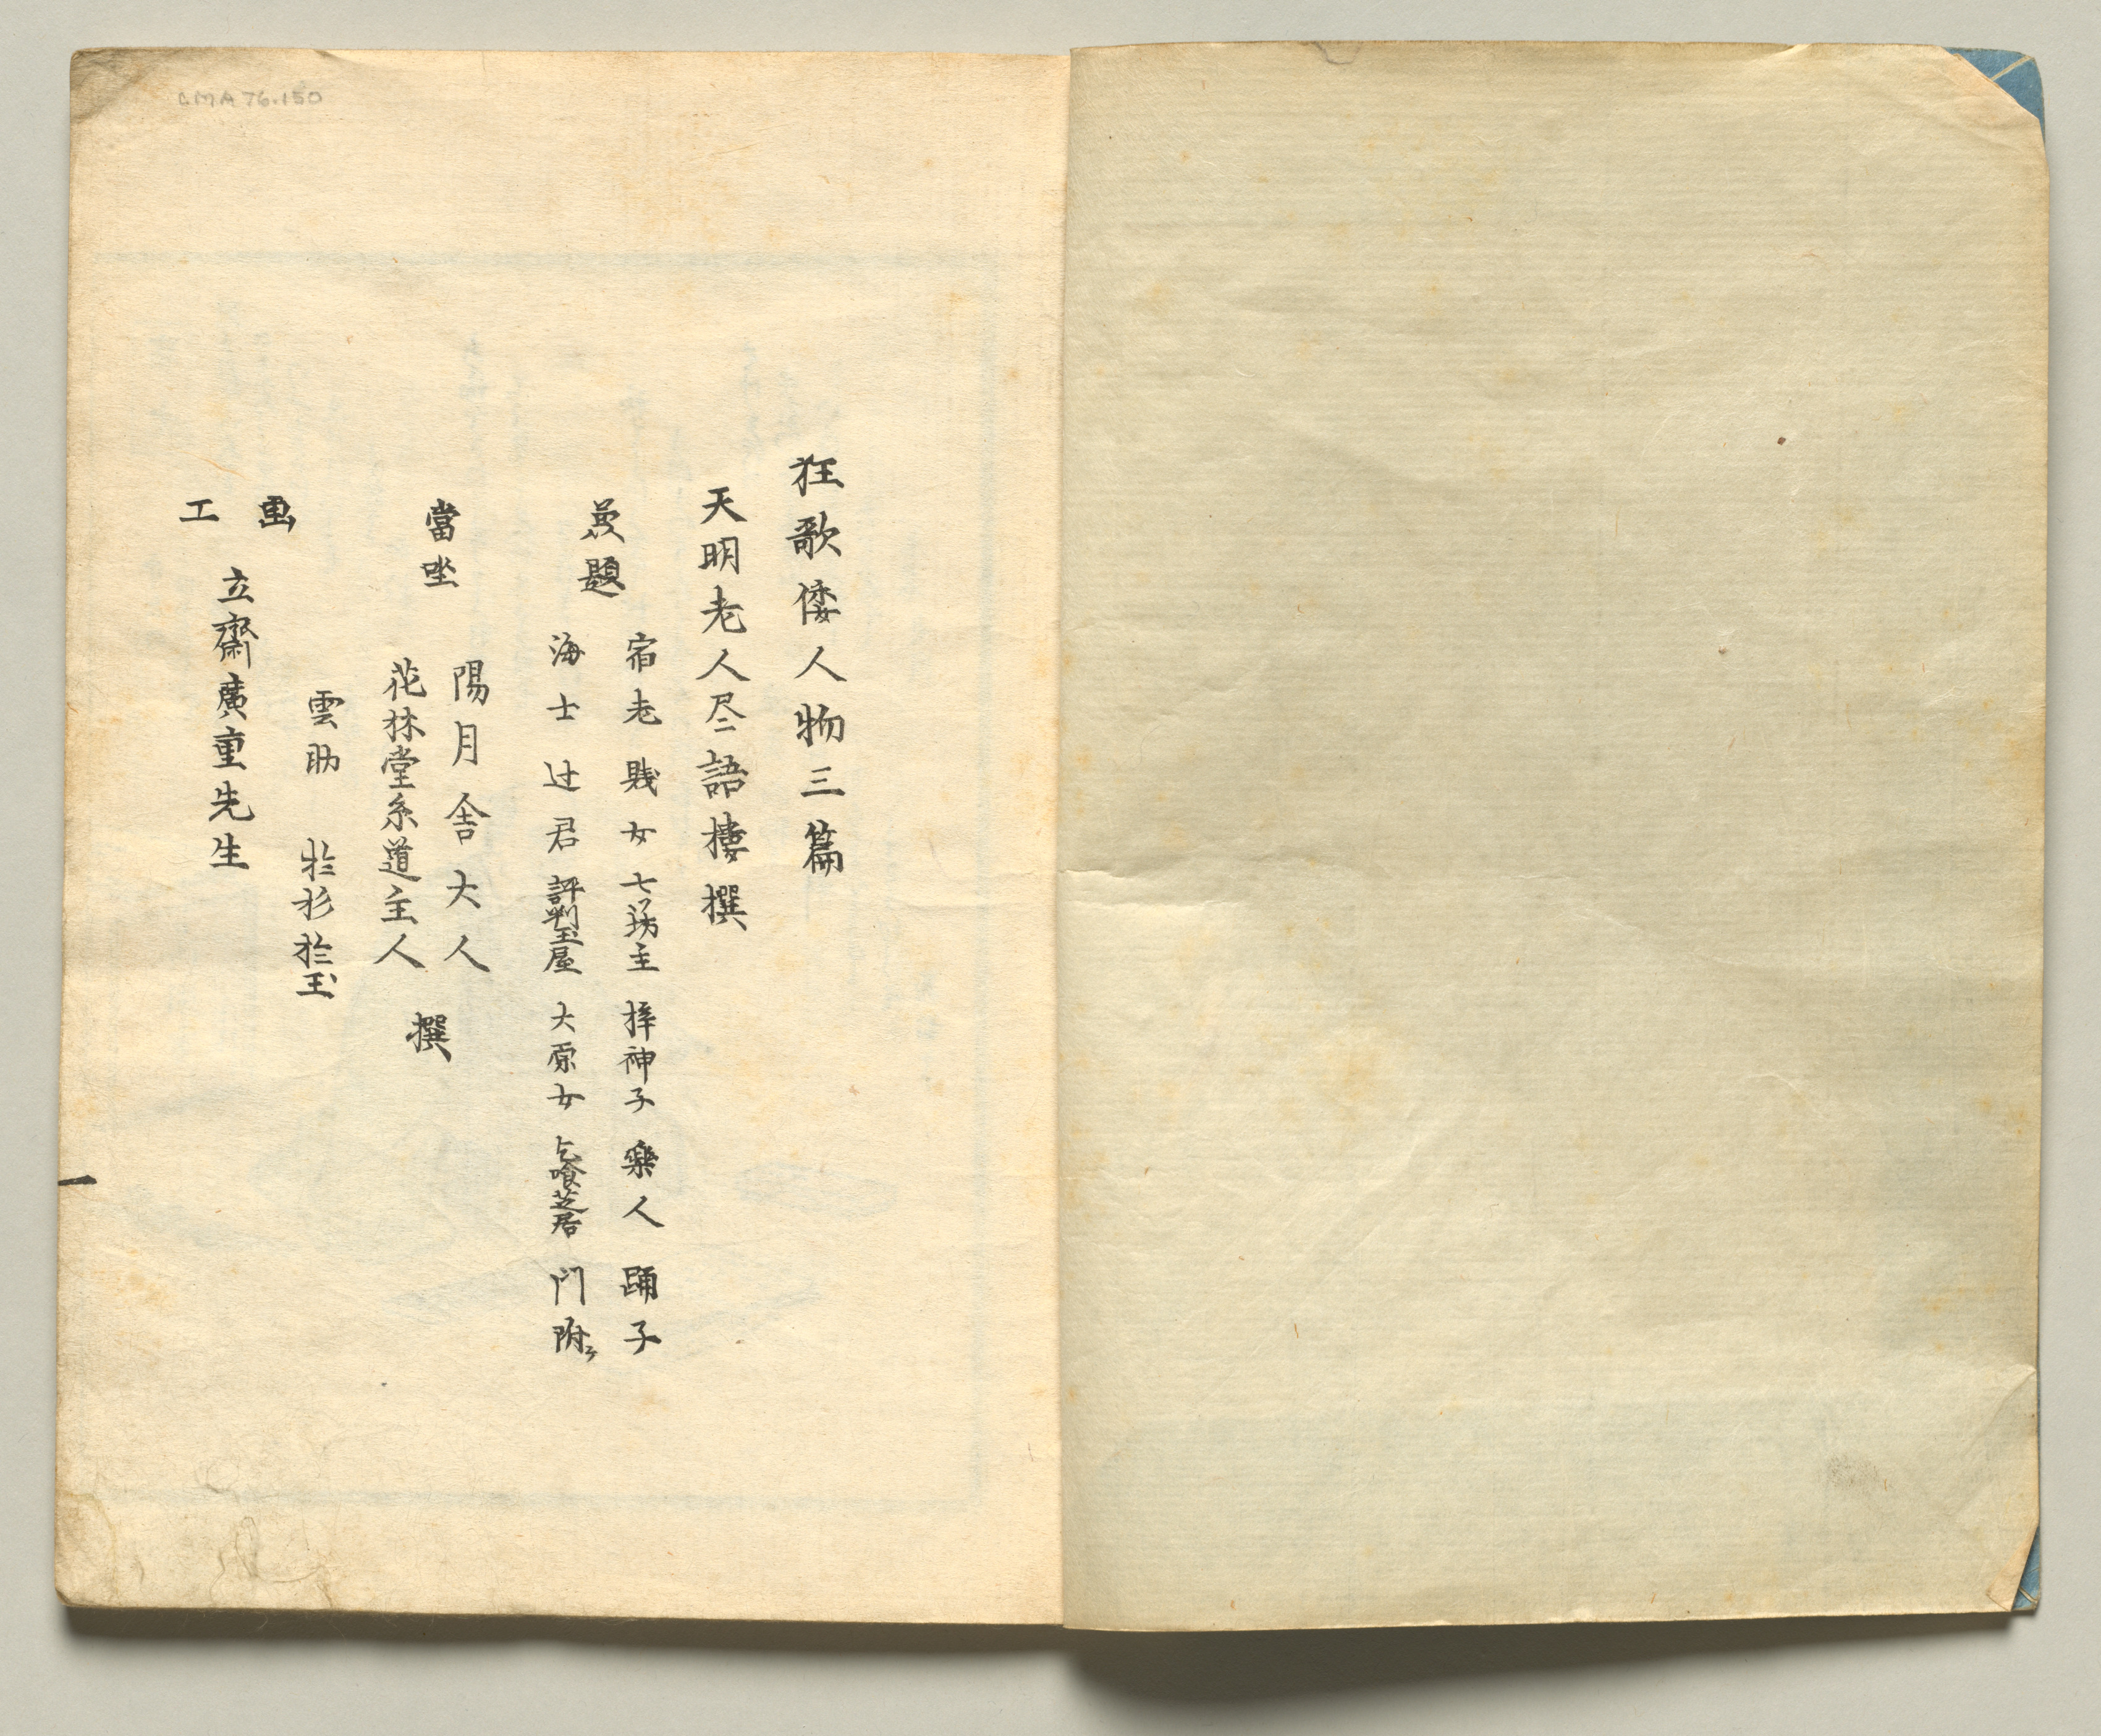 狂歌倭人物三篇
天明老人尽語樓撰
兼題
宿老 賤女 七々坊主 梓神子 樂人 踊子
海士 辻君 評判玉屋 大原女 乞喰芝居 門附
當坐
陽月舎大人
花林堂糸道主人
撰
雲助 於杉於玉
画工
立齋廣重先生
一
CMA 76.150